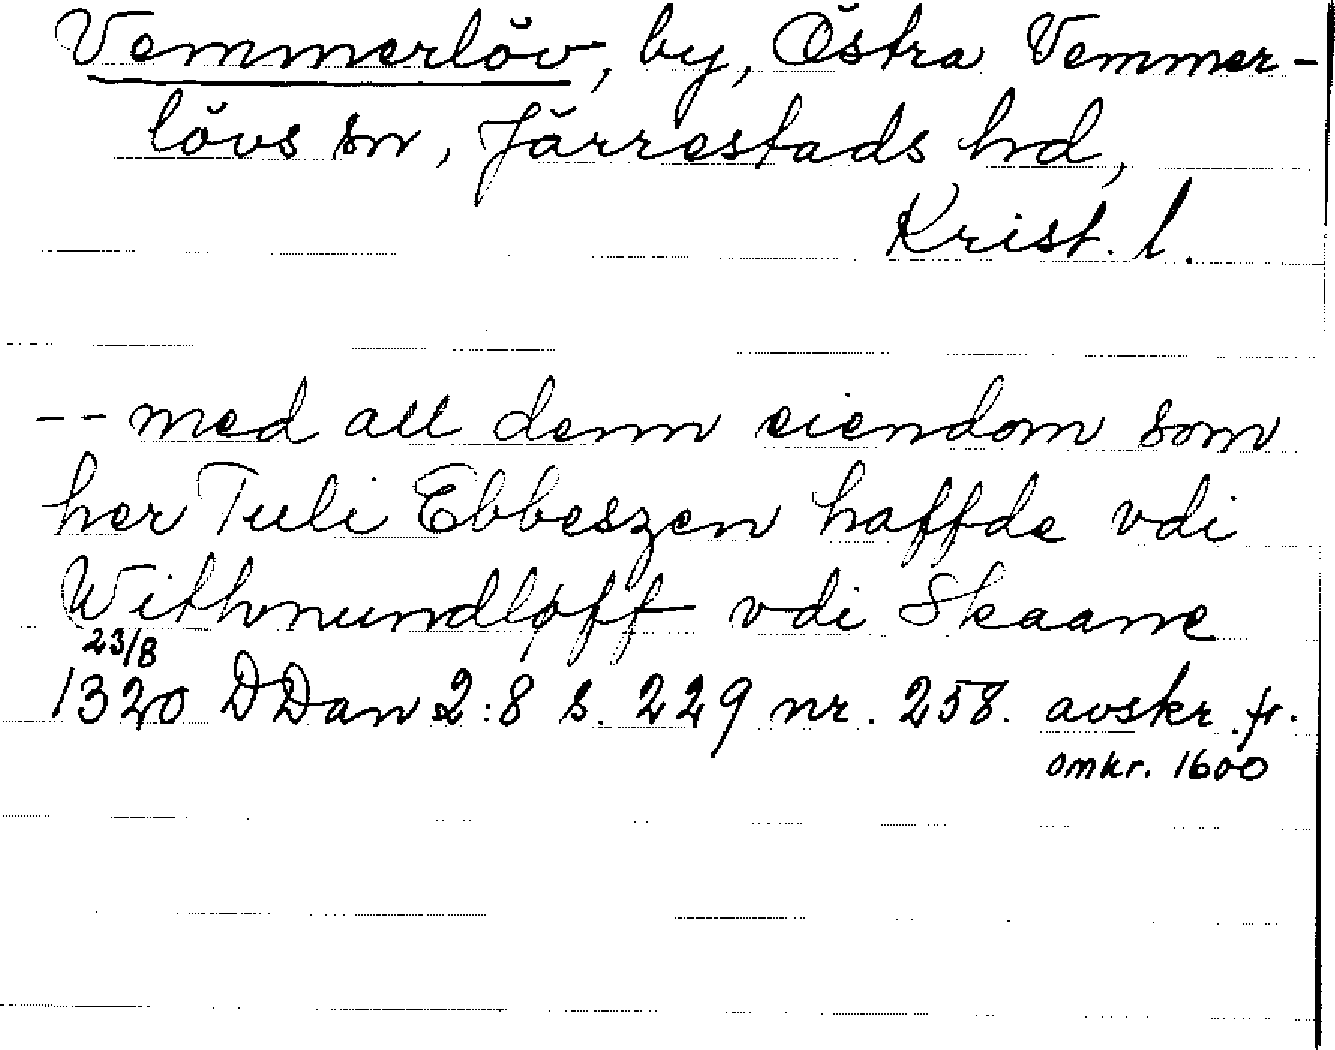 Vemmerlöv, by, Östra Vemmer-
lövs sn, Järrestads hd,
Krist. l.
-- med all denn eiendom som
her Tuli Ebbeszen haffde vdi
Withmundløff vdi Skaane
23/8
1320 DDan 2:8 s. 229 nr. 258. avskr. fr.
omkr. 1600